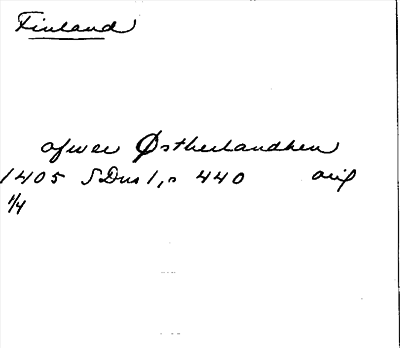 Finland
ofwer Østherlandhen
1405 SDns 1, s 440 orig
1/4